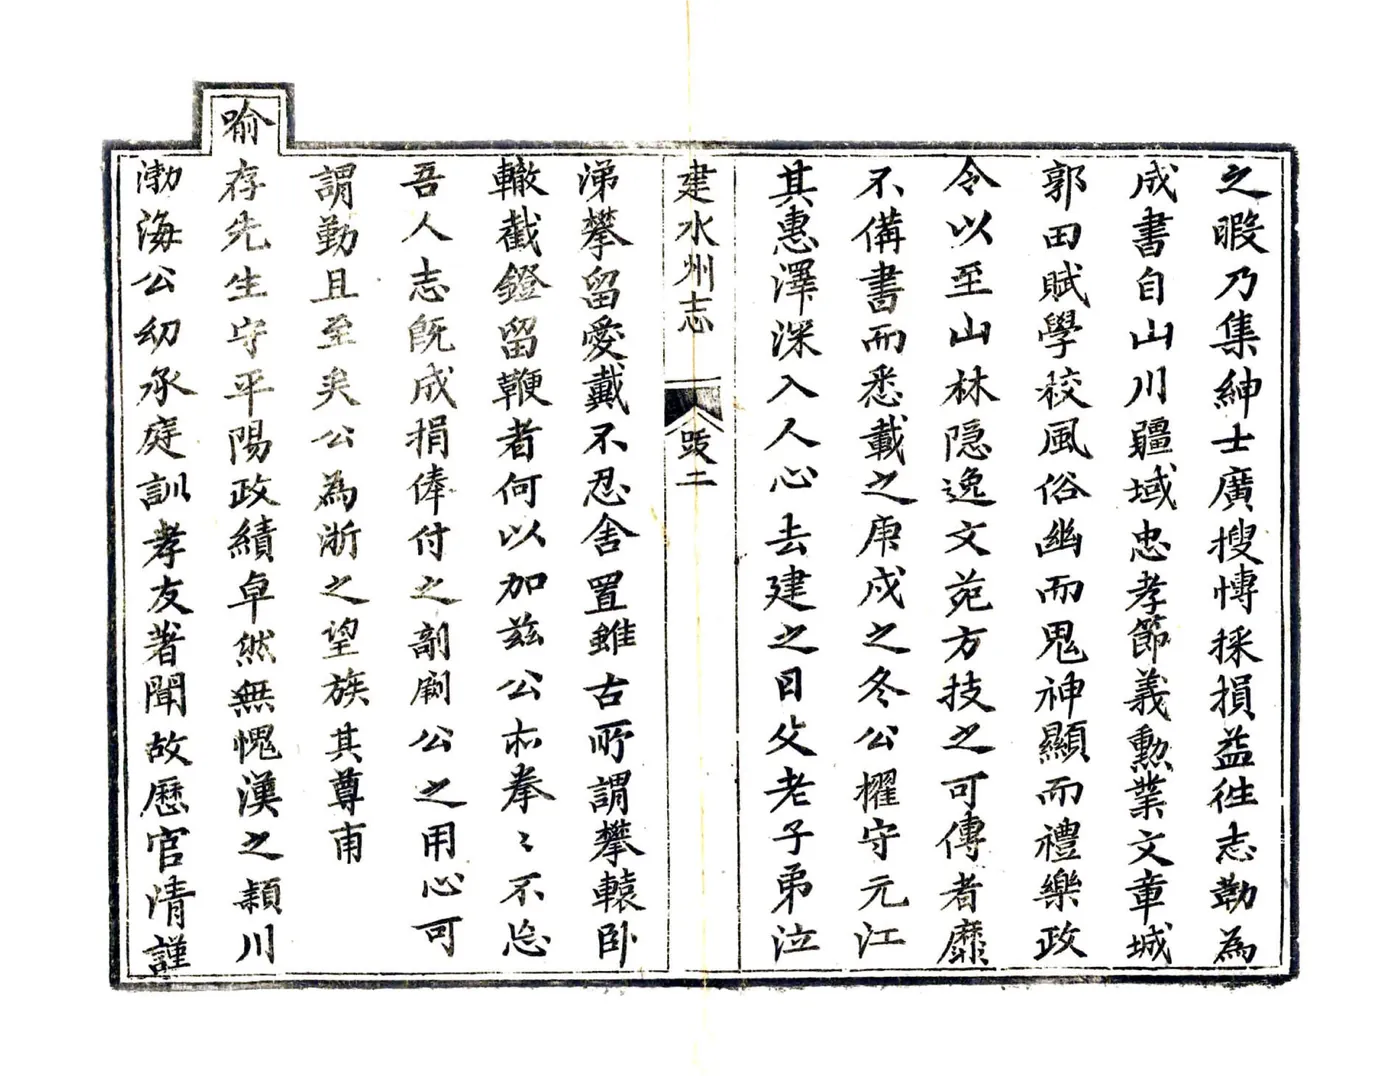 之暇乃集紳士廣搜博採損益徃志勒為
成書自山川疆域忠孝節義勲業文章城
郭田賦學校風俗幽而鬼神顯而禮樂政
令以至山林隠逸文苑方技之可傳者靡
不備書而悉載之庚戌之冬公擢守元江
其惠澤深入人心去建之日父老子弟泣
建水州志 跋二
涕攀留愛戴不忍舍置雖古所謂攀轅卧
轍截鐙留鞭者何以加茲公亦拳〻不忘
吾人志既成捐俸付之剞劂公之用心可
謂勤且至矣公為浙之望族其尊甫
喻存先生守平陽政績卓然無愧漢之潁川
渤海公幼承庭訓孝友著聞故歷官清謹